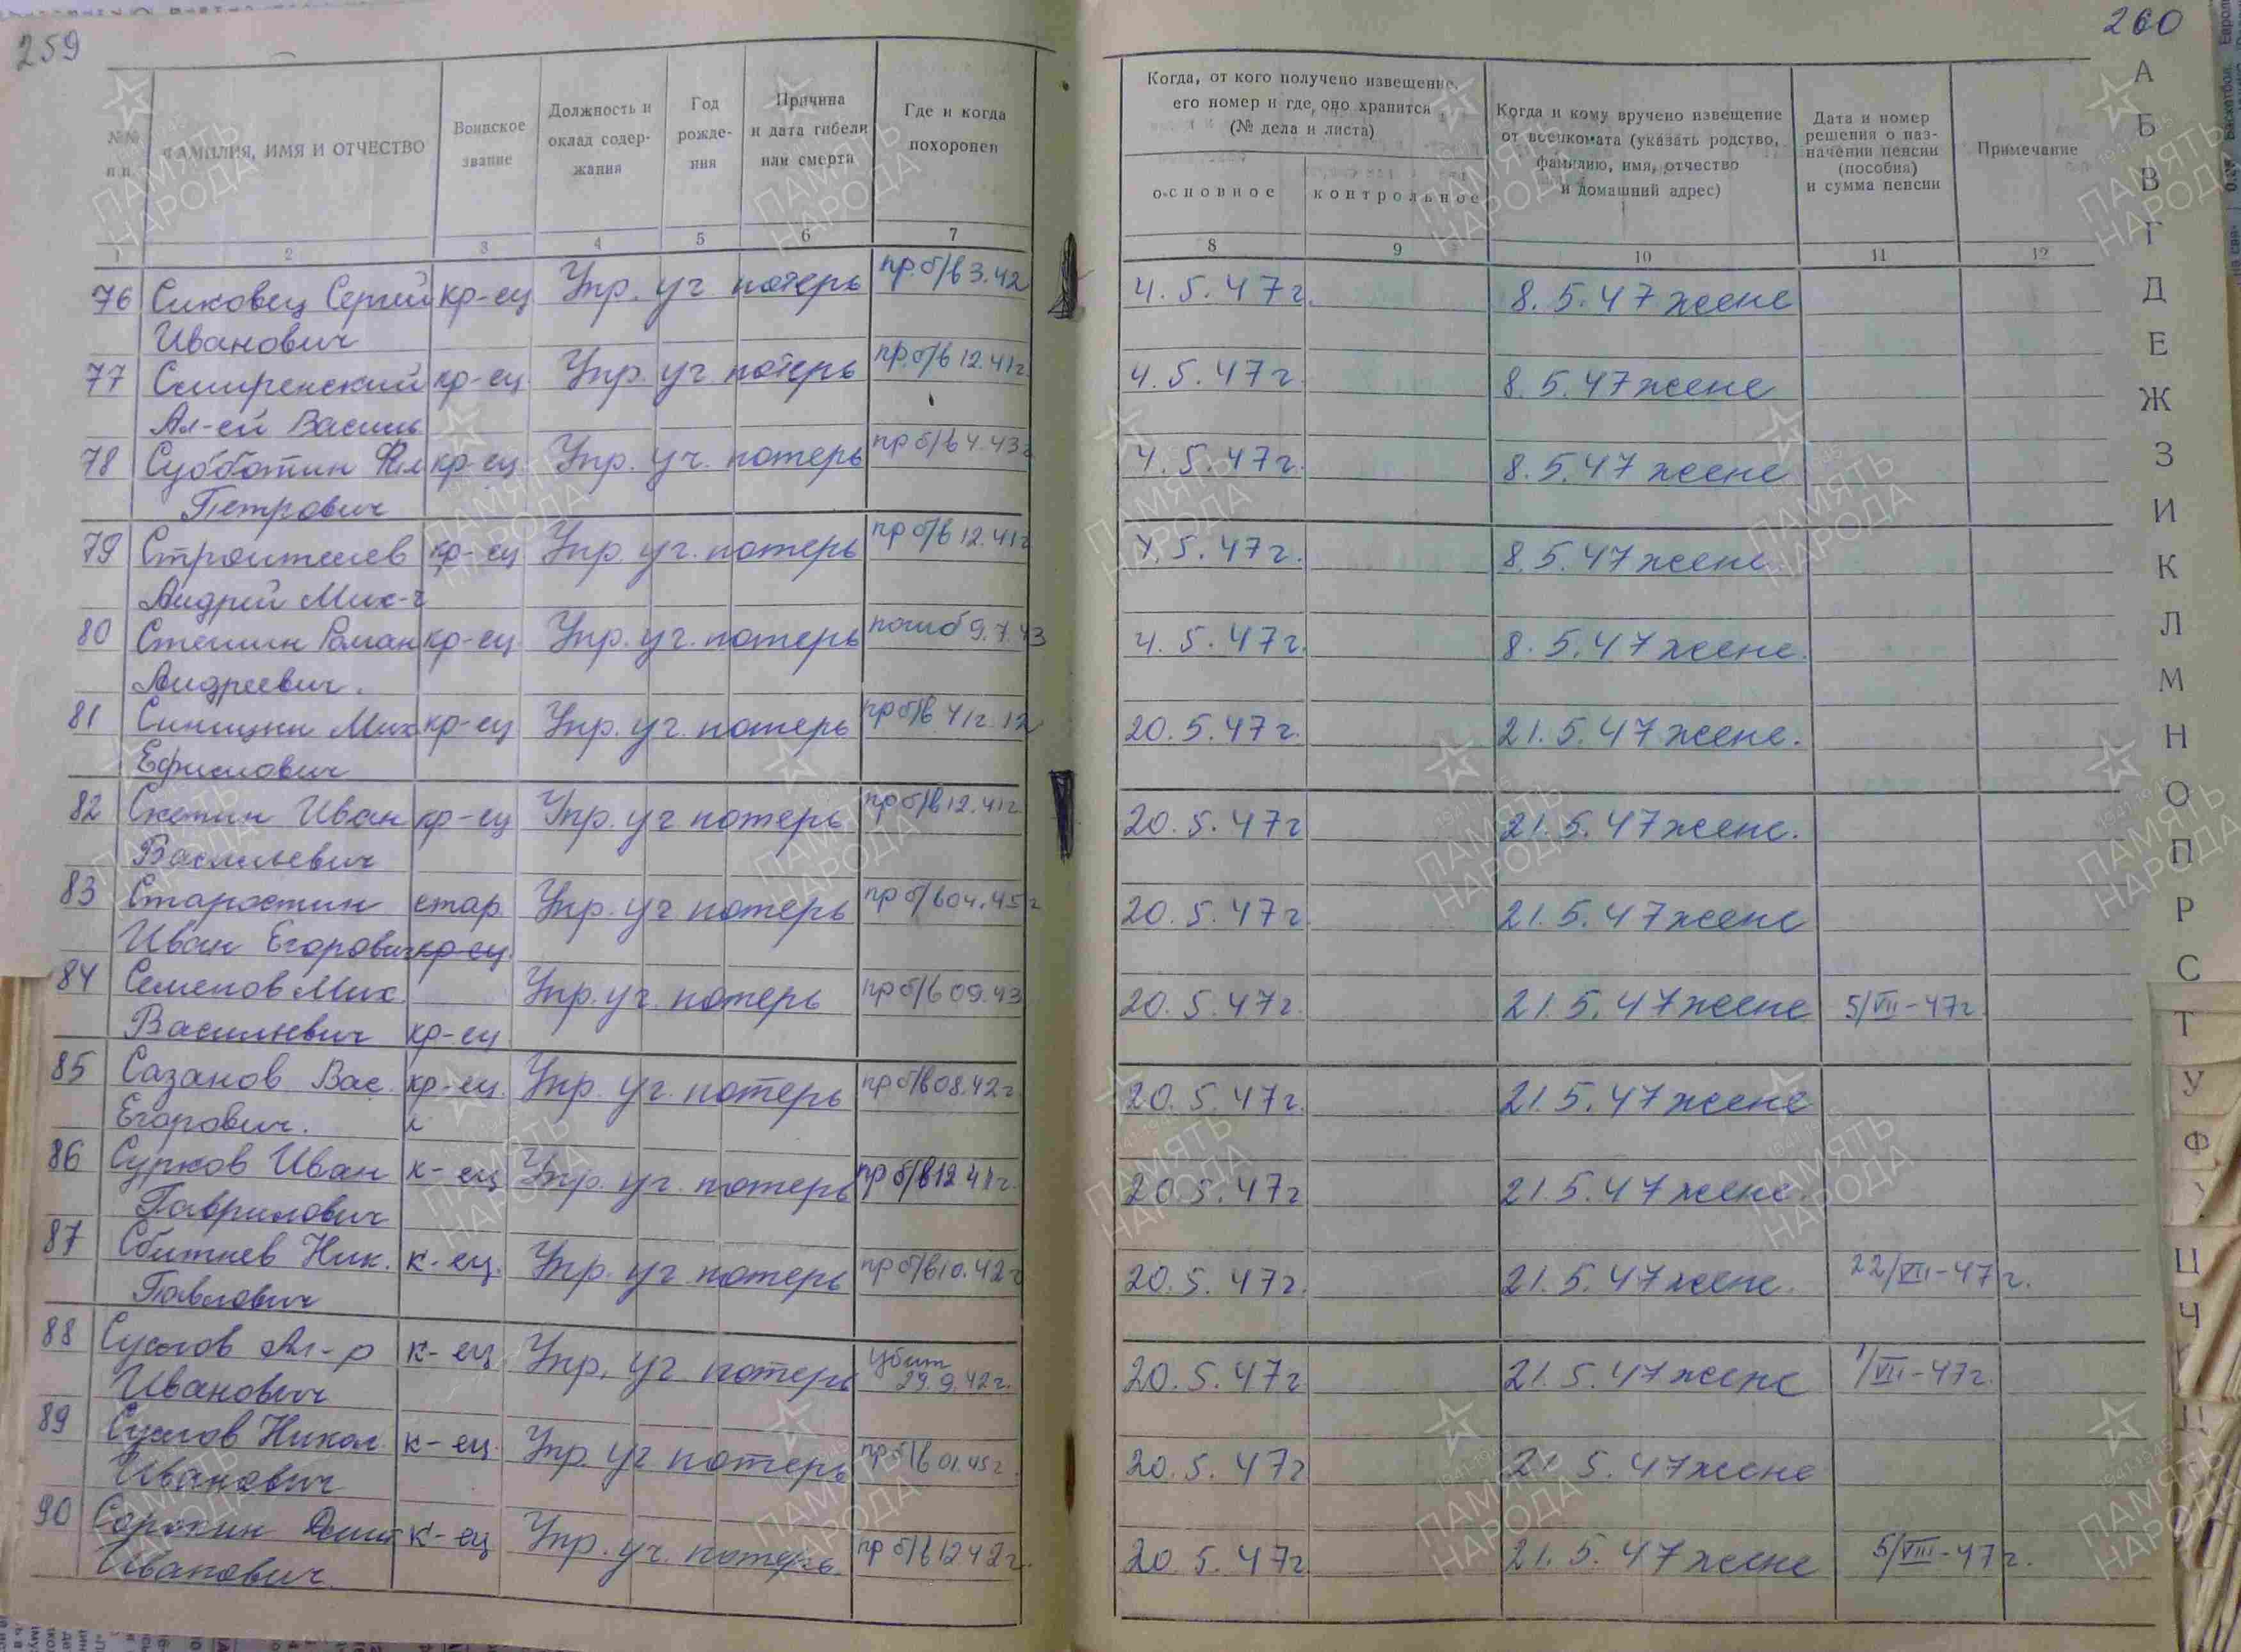 259
№№ п.п.
ФАМИЛИЯ, ИМЯ И ОТЧЕСТВО
Воинское звание
Должность и оклад содер- жания
Год рожде- ния
Причина и дата гибели или смерти
Где и когда похоронен
1 2 3 4 5 6 7
76 Сиковец Сергей кр-ец Упр. уч. потерь пр. б/в 3.42
Иванович
77 Смиренский кр-ец Упр. уч потерь пр. б/в 12.41г.
Ал-ей Василь
78 Субботин Фил кр-ец Упр. уч. потерь пр б/в 4.43г
Петрович
79 Строителев кр-ец Упр. уч. потерь пр б/в 12.41г
Андрей Мих-ч
80 Степин Роман кр-ец Упр. уч. потерь погиб 9.7.43
Андреевич.
81 Синицин Мих кр-ец Упр. уч. потерь пр б/в 41г. 12
Ефимович
82 Скетин Иван кр-ец Упр. уч потерь пр б/в 12.41г
Васильевич
83 Старостин стар Упр. уч потерь пр б/в 04.45г
Иван Егорович кр-ец
84 Семенов Мих. Упр. уч. потерь пр б/в 09.43
Васильевич кр-ец
85 Сазанов Вас. кр-ец. Упр. уч. потерь пр б/в 08.42г
Егорович.
86 Сурков Иван к-ец Упр. уч. потерь пр б/в 12 41г.
Гаврилович
87 Сбитнев Ник. к-ец. Упр. уч потерь пр б/в 10.42г
Павлович
88 Суслов Ал-р к-ец Упр. уч. потерь убит 29.9.42г.
Иванович
89 Суслов Никол. к-ец. Упр. уч потерь пр б/в 01.45г.
Иванович
90 Сорокин Дмит к-ец Упр. уч. потерь. пр б/в 12 42г.
Иванович.
260
Когда, от кого получено извещение,
его номер и где оно хранится
(№ дела и листа)
основное
контрольное
Когда и кому вручено извещение
от военкомата (указать родство,
фамилию, имя, отчество
и домашний адрес)
Дата и номер
решения о наз-
начении пенсии
(пособия)
и сумма пенсии
Примечание
8 9 10 11 12
4.5.47г. 8.5.47 жене
4.5.47г. 8.5.47 жене
4.5.47г. 8.5.47 жене
4.5.47г. 8.5.47 жене.
4.5.47г. 8.5.47 жене.
20.5.47г. 21.5.47 жене.
20.5.47г 21.5.47 жене.
20.5.47г. 21.5.47 жене
20.5.47г. 21.5.47 жене 5/VII-47г.
20.5.47г. 21.5.47 жене
20.5.47г 21.5.47 жене.
20.5.47г. 21.5.47 жене. 22/VII-47г.
20.5.47г 21.5.47 жене 1/VII-47г.
20.5.47г 21.5.47 жене
20.5.47г 21.5.47 жене 5/VIII-47г.
А
Б
В
Г
Д
Е
Ж
З
И
К
Л
М
Н
О
П
Р
С
Т
У
Ф
Ц
Ч
ПАМЯТЬ НАРОДА
1941-1945